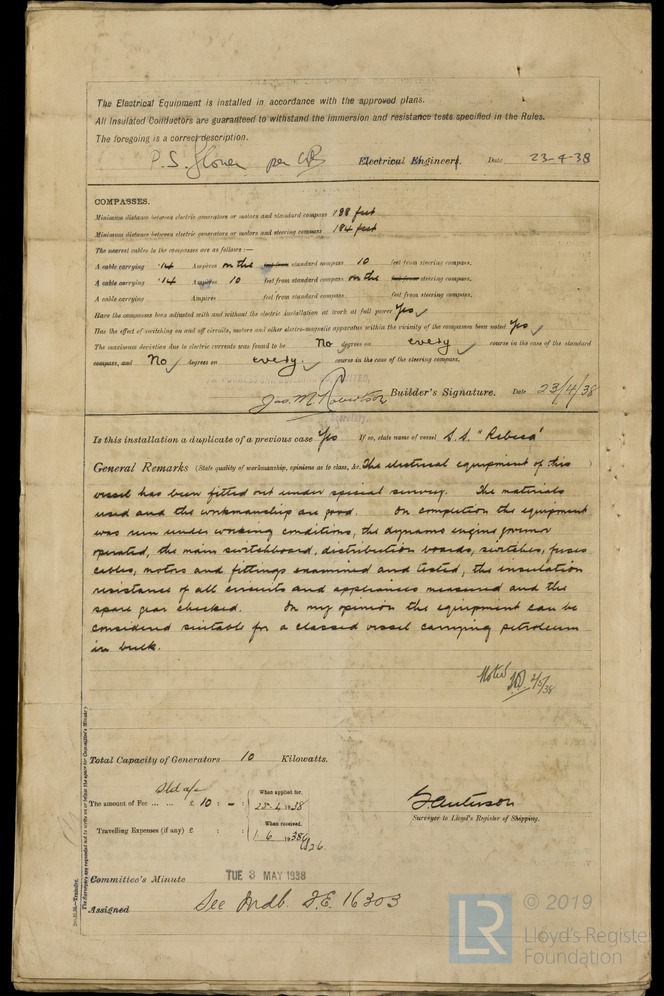 The Electrical Equipment is installed in accordance with the approved plans.
All Insulated Conductors are guaranteed to withstand the immersion and resistance tests specified in the Rules.
The foregoing is a correct description.
P.S. per Electrical Engineers. Date 23-4-38
COMPASSES.
Minimum distance between electric generators or motors and standard compass 188 feet
Minimum distance between electric generators or motors and steering compass 184 feet
The nearest cables to the compasses are as follows:—
A cable carrying .14 Ampères on the feet from standard compass 10 feet from steering compass.
A cable carrying .14 Ampères 10 feet from standard compass on the feet from steering compass.
A cable carrying Ampères feet from standard compass feet from steering compass.
Have the compasses been adjusted with and without the electric installation at work at full power Yes
Has the effect of switching on and off circuits, motors and other electro-magnetic apparatus within the vicinity of the compasses been noted Yes
The maximum deviation due to electric currents was found to be No degrees on every course in the case of the standard
compass, and No degrees on every course in the case of the steering compass.
Jas. M. Robertson Builder's Signature. Date 23/4/38
Secretary
Is this installation a duplicate of a previous case Yes If so, state name of vessel S.S. "Rebeca"
General Remarks (State quality of workmanship, opinions as to class, &c. The electrical equipment of this )
vessel has been fitted out under special survey. The materials
used and the workmanship are good. On completion the equipment
was run under working conditions, the dynamo engine governor
operated, the main switchboard, distribution boards, switches, fuses
cables, motors and fittings examined and tested, the insulation
resistance of all circuits and appliances measured and the
spare gear checked. In my opinion the equipment can be
considered suitable for a classed vessel carrying petroleum
in bulk.
Noted 2/5/38
Total Capacity of Generators 10 Kilowatts.
The amount of Fee ... ... £ 10 : - :
When applied for,
1938
When received,
1 . 6 . 1938
Travelling Expenses (if any) £ : :
Surveyor to Lloyd's Register of Shipping.
Committee's Minute TUE 3 MAY 1938
Assigned See Mdb. F.E. 16303
The Surveyors are requested not to write on or below the space for Committee's Minute.)
Transfer.
LR © 2019
Lloyd's Register
Foundation